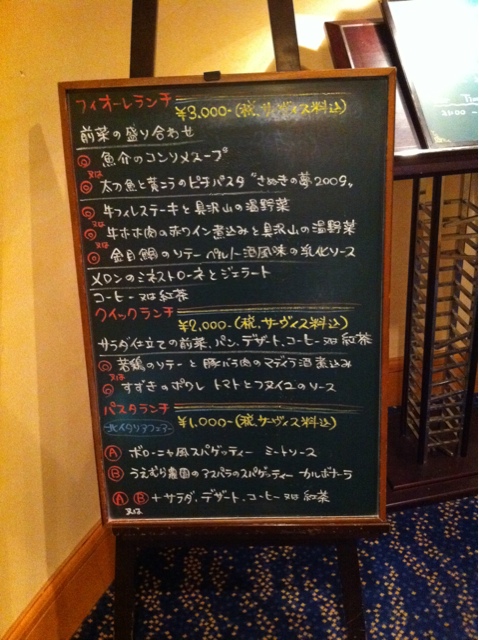 フィオーレランチ ¥3,000-(税.サーヴィス料込)
前菜の盛り合わせ
◎ 魚介のコンソメスープ
又は
◎ 太刀魚と黄ニラのピチパスタ"さぬきの夢2009"
◎ 牛フィレステーキと具沢山の温野菜
又は
◎ 牛ホホ肉の赤ワイン煮込みと具沢山の温野菜
又は
◎ 金目鯛のソテー ペルノー酒風味の乳化ソース
メロンのミネストローネとジェラート
コーヒー 又は 紅茶
クイックランチ ¥2,000-(税.サーヴィス料込)
サラダ仕立ての前菜、パン、デザート、コーヒー 又は 紅茶
◎ 若鶏のソテーと豚バラ肉のマディラ酒煮込み
又は
◎ すずきのポワレ トマトとフヌイユのソース
パスタランチ ¥1,000-(税.サーヴィス料込)
北イタリアフェアー
Ⓐ ボローニャ風スパゲッティー ミートソース
Ⓑ うえむら農園のアスパラのスパゲッティー カルボナーラ
Ⓐ Ⓑ +サラダ、デザート、コーヒー 又は 紅茶
又は